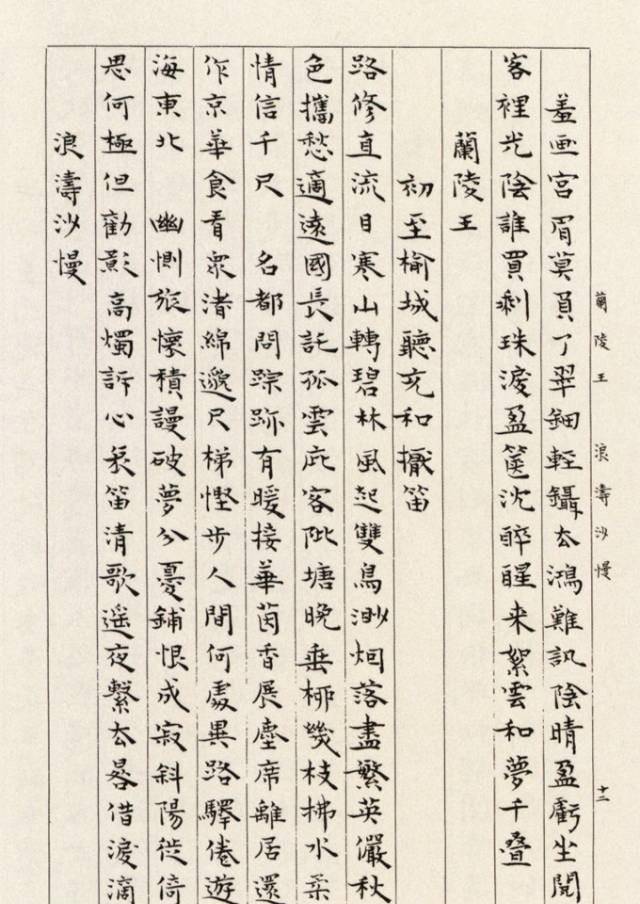 羞画宫眉莫負了翠鈿輕鑷去鴻難訊陰晴盈虧坐閲
客裡光陰誰買剩珠淚盈篋沈醉醒来絮雲和夢千疊
蘭陵王
初至榆城聽充和擫笛
路修直流目寒山轉碧林風起雙鳥渺烟落盡繁英儼秋
色攜愁適遠國長託孤雲庇客阰塘晚垂柳幾枝拂水柔
情信千尺 名都問踪跡有暖接華茵香展塵席離居還
作京華食看衆渚綿邈尺梯慳步人間何處異路驛倦遊
海東北 幽惻旅懷積謾破夢分憂鋪恨成寂斜陽徙倚
思何極但勸影高燭訴心哀笛清歌遥夜繫去晷借淚滴
浪濤沙慢
蘭陵王 浪濤沙慢
十二